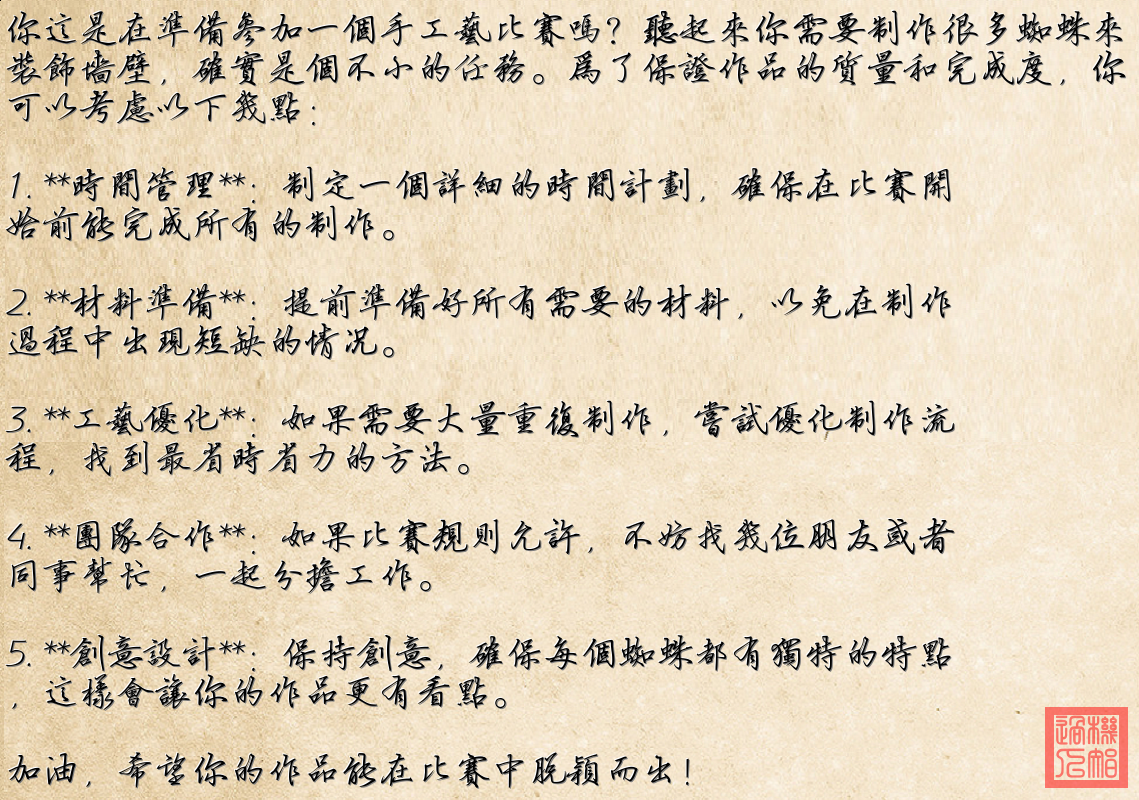 你這是在準備參加一個手工藝比賽嗎？聽起來你需要制作很多蜘蛛來
裝飾墙壁，確實是個不小的任務。爲了保證作品的質量和完成度，你
可以考慮以下幾點：
1. **時間管理**：制定一個詳細的時間計劃，確保在比賽開
始前能完成所有的制作。
2. **材料準備**：提前準備好所有需要的材料，以免在制作
過程中出現短缺的情况。
3. **工藝優化**：如果需要大量重復制作，嘗試優化制作流
程，找到最省時省力的方法。
4. **團隊合作**：如果比賽規則允許，不妨找幾位朋友或者
同事幫忙，一起分擔工作。
5. **創意設計**：保持創意，確保每個蜘蛛都有獨特的特點
，這樣會讓你的作品更有看點。
加油，希望你的作品能在比賽中脱穎而出！